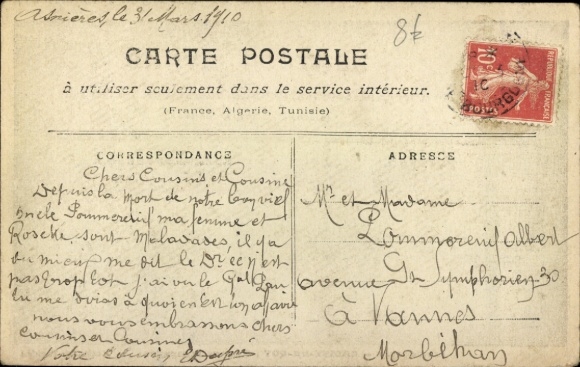 Asnières, le 31 Mars 1910
8f
CARTE POSTALE
à utiliser seulement dans le service intérieur.
(France, Algerie, Tunisie)
CORRESPONDANCE
Chers Cousins et Cousine
Depuis la mort de notre bon vieil
oncle Pommereuif ma femme et
sont Maladades, il y a
du mieux me dit le Dr ce n'est
pas trop tot j'ai vu le Gal
tu me diras à quoi en est
nous vous embrassons chers
cousins et Cousines
Votre Cousin
ADRESSE
Mr et Madame
Pommereuif Albert
avenue St Symphorien-30
à Vannes
Morbihan
10c
REPUBLIQUE FRANÇAISE
POSTES